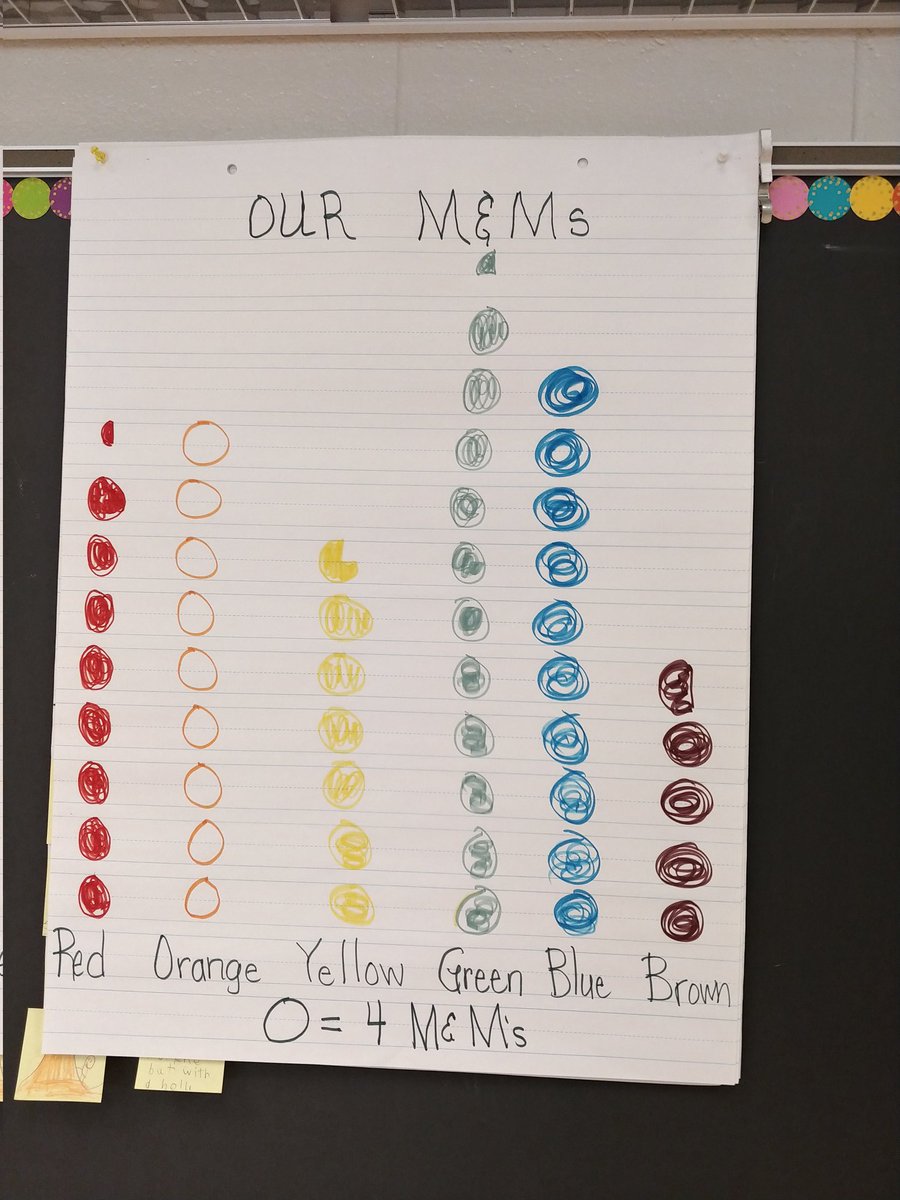 OUR M&Ms
Red Orange Yellow Green Blue Brown
O = 4 M&M's
but with